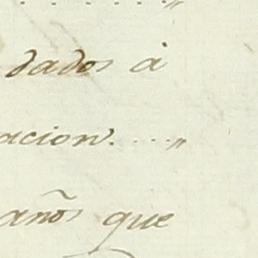 . . . . . . . . „
dados à
acion. . . . „
años que